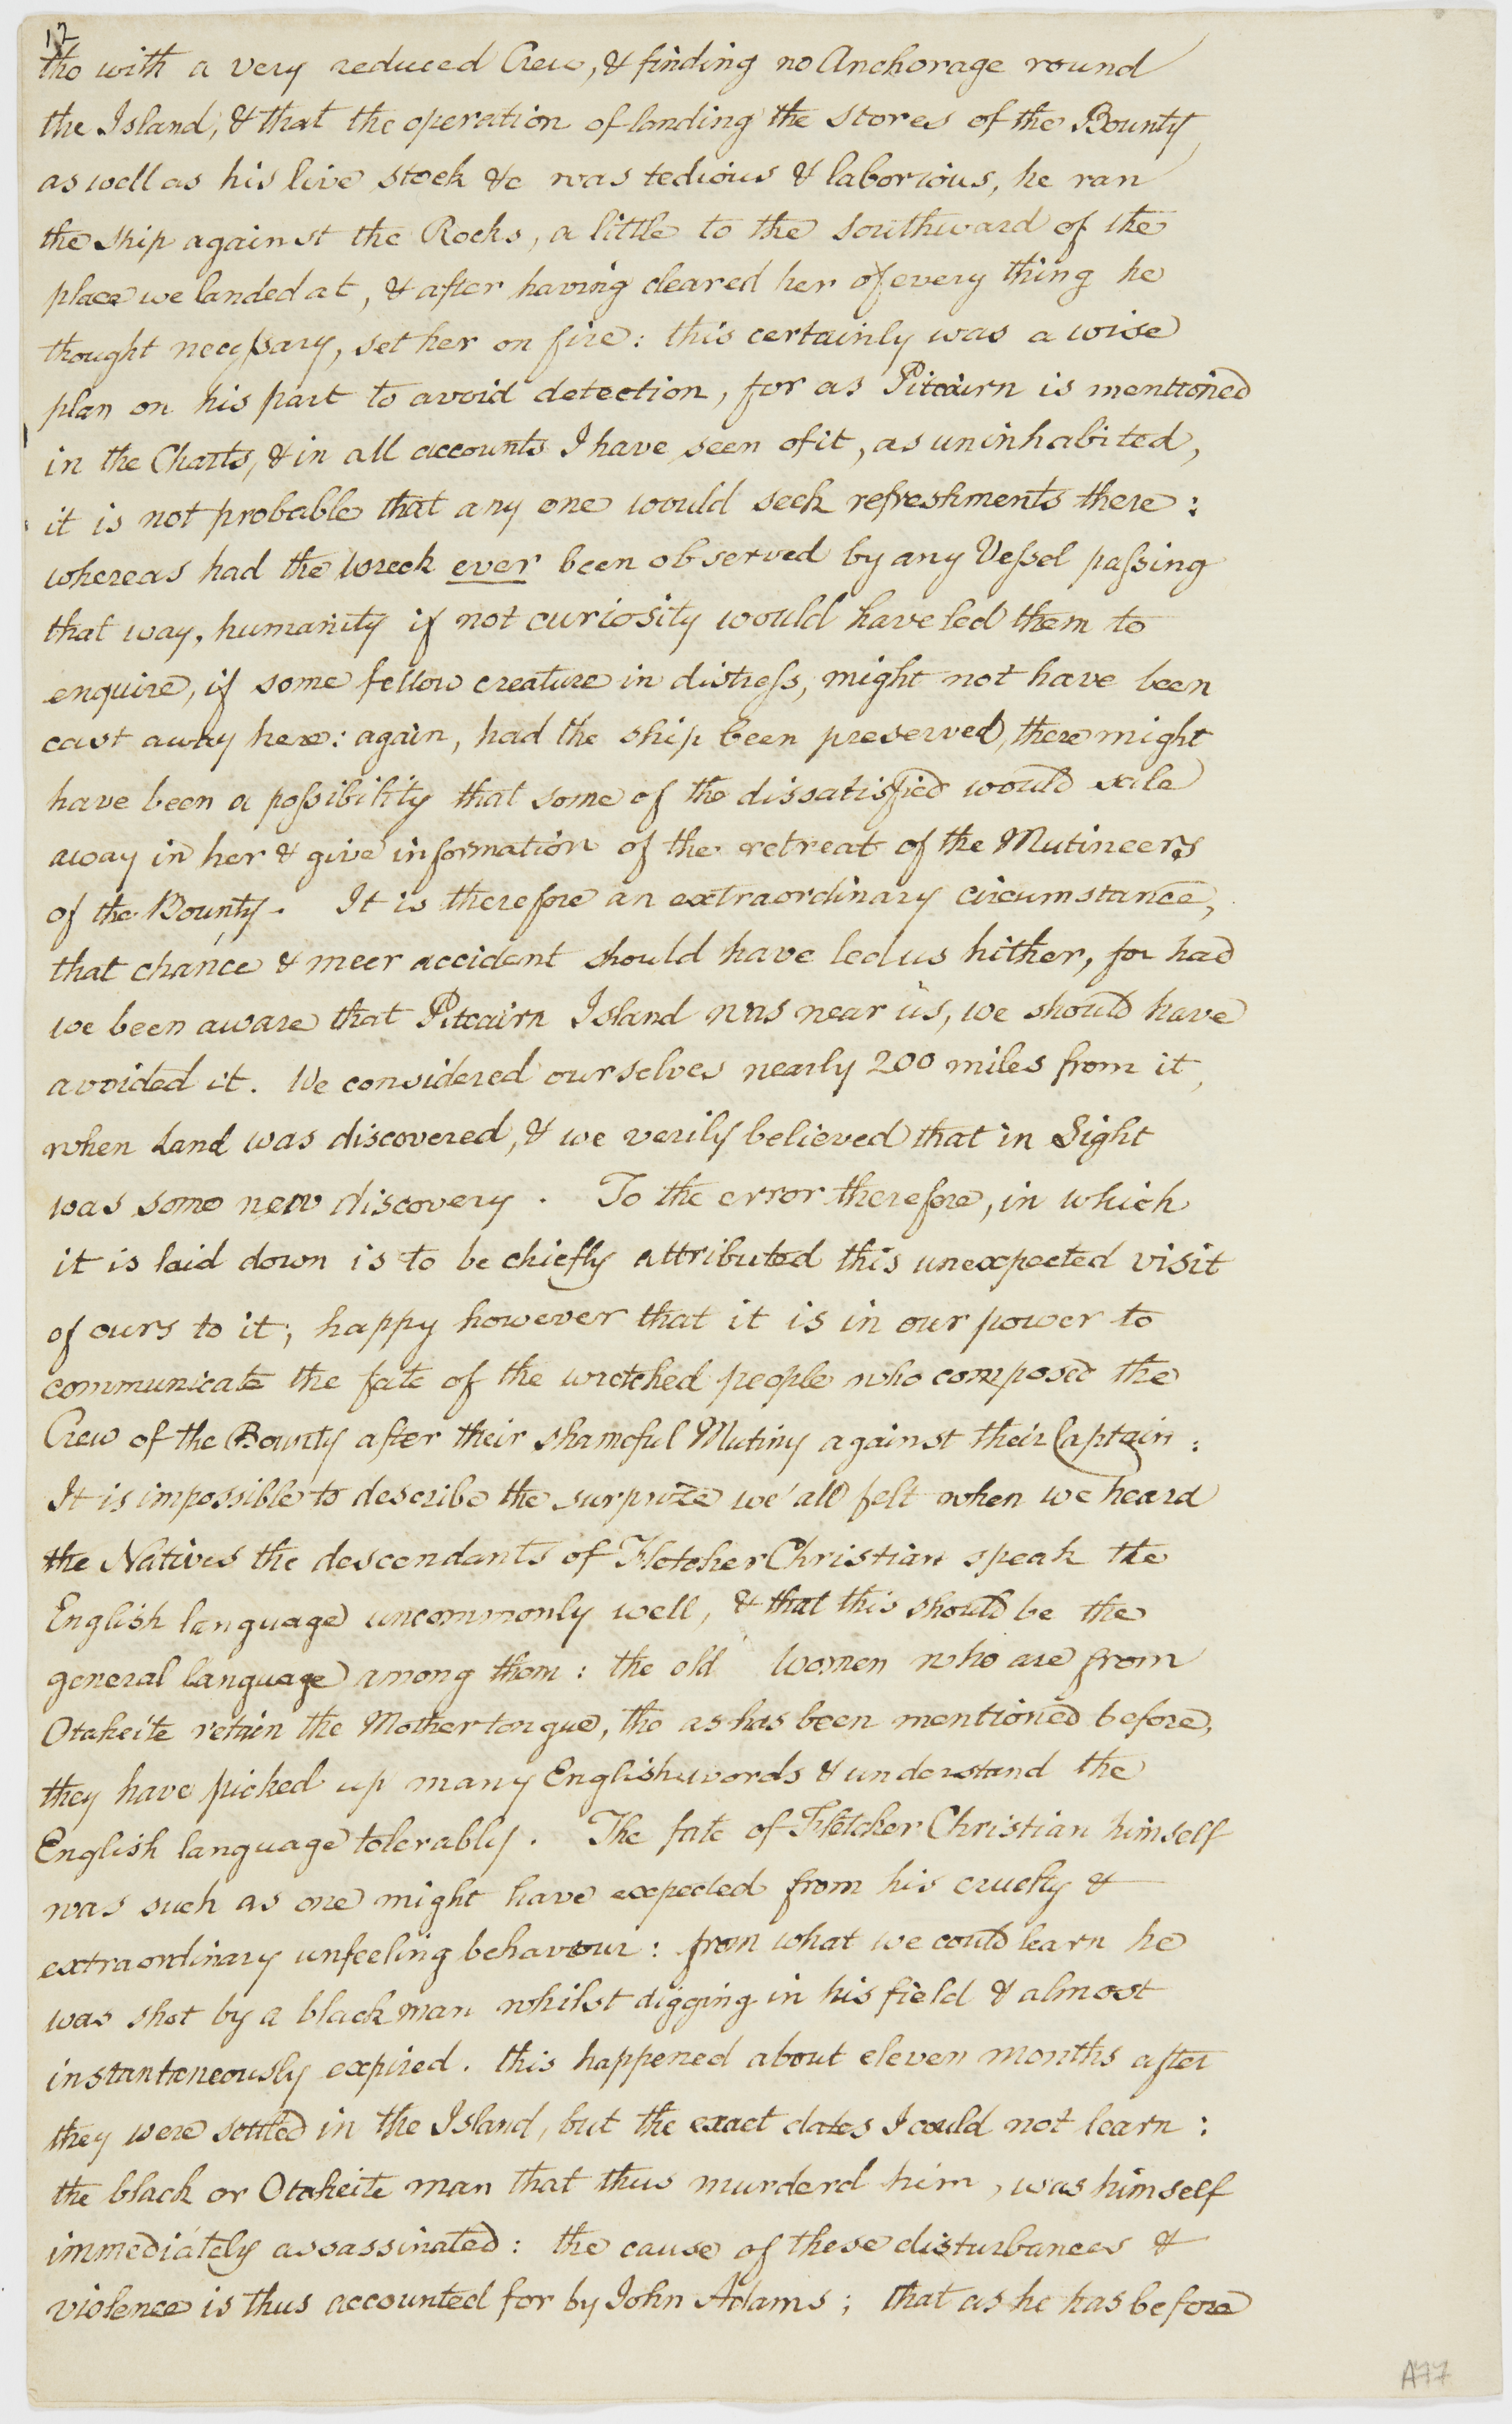 12
tho with a very reduced Crew, & finding no Anchorage round
the Island, & that the operation of landing the stores of the Bounty,
as well as his live stock &c was tedious & laborious, he ran
the ship against the Rocks, a little to the Southward of the
place we landed at, & after having cleared her of every thing he
thought necessary, set her on fire: this certainly was a wise
plan on his part to avoid detection, for as Pitcairn is mentioned
in the Charts, & in all accounts I have seen of it, as uninhabited,
it is not probable that any one would seek refreshments there:
whereas had the wreck ever been observed by any Vessel passing
that way, humanity if not curiosity would have led them to
enquire, if some fellow creature in distress, might not have been
cast away here: again, had the ship been preserved, there might
have been a possibility that some of the dissatisfied would sail
away in her & give information of the retreat of the Mutineers
of the Bounty. It is therefore an extraordinary circumstance,
that chance & meer accident should have led us hither, for had
we been aware that Pitcairn Island was near us, we should have
avoided it. We considered ourselves nearly 200 miles from it,
when Land was discovered, & we verily believed that in Sight
was some new discovery. To the error therefore, in which
it is laid down is to be chiefly attributed this unexpected visit
of ours to it; happy however that it is in our power to
communicate the fate of the wretched people who composed the
Crew of the Bounty after their shameful Mutiny against their Captain:
It is impossible to describe the surprize we all felt when we heard
the Natives the descendants of Fletcher Christian speak the
English language uncommonly well, & that this should be the
general language among them: the old Women who are from
Otaheite retain the Mother tongue, tho as has been mentioned before,
they have picked up many English words & understand the
English language tolerably. The fate of Fletcher Christian himself
was such as one might have expected from his cruelty &
extraordinary unfeeling behaviour: from what we could learn he
was shot by a black man whilst digging in his field & almost
instantaneously expired. this happened about eleven months after
they were settled in the Island, but the exact dates I could not learn:
the black or Otaheite man that thus murderd him, was himself
immediately assassinated: the cause of these disturbances &
violence is thus accounted for by John Adams; that as he has before
A77